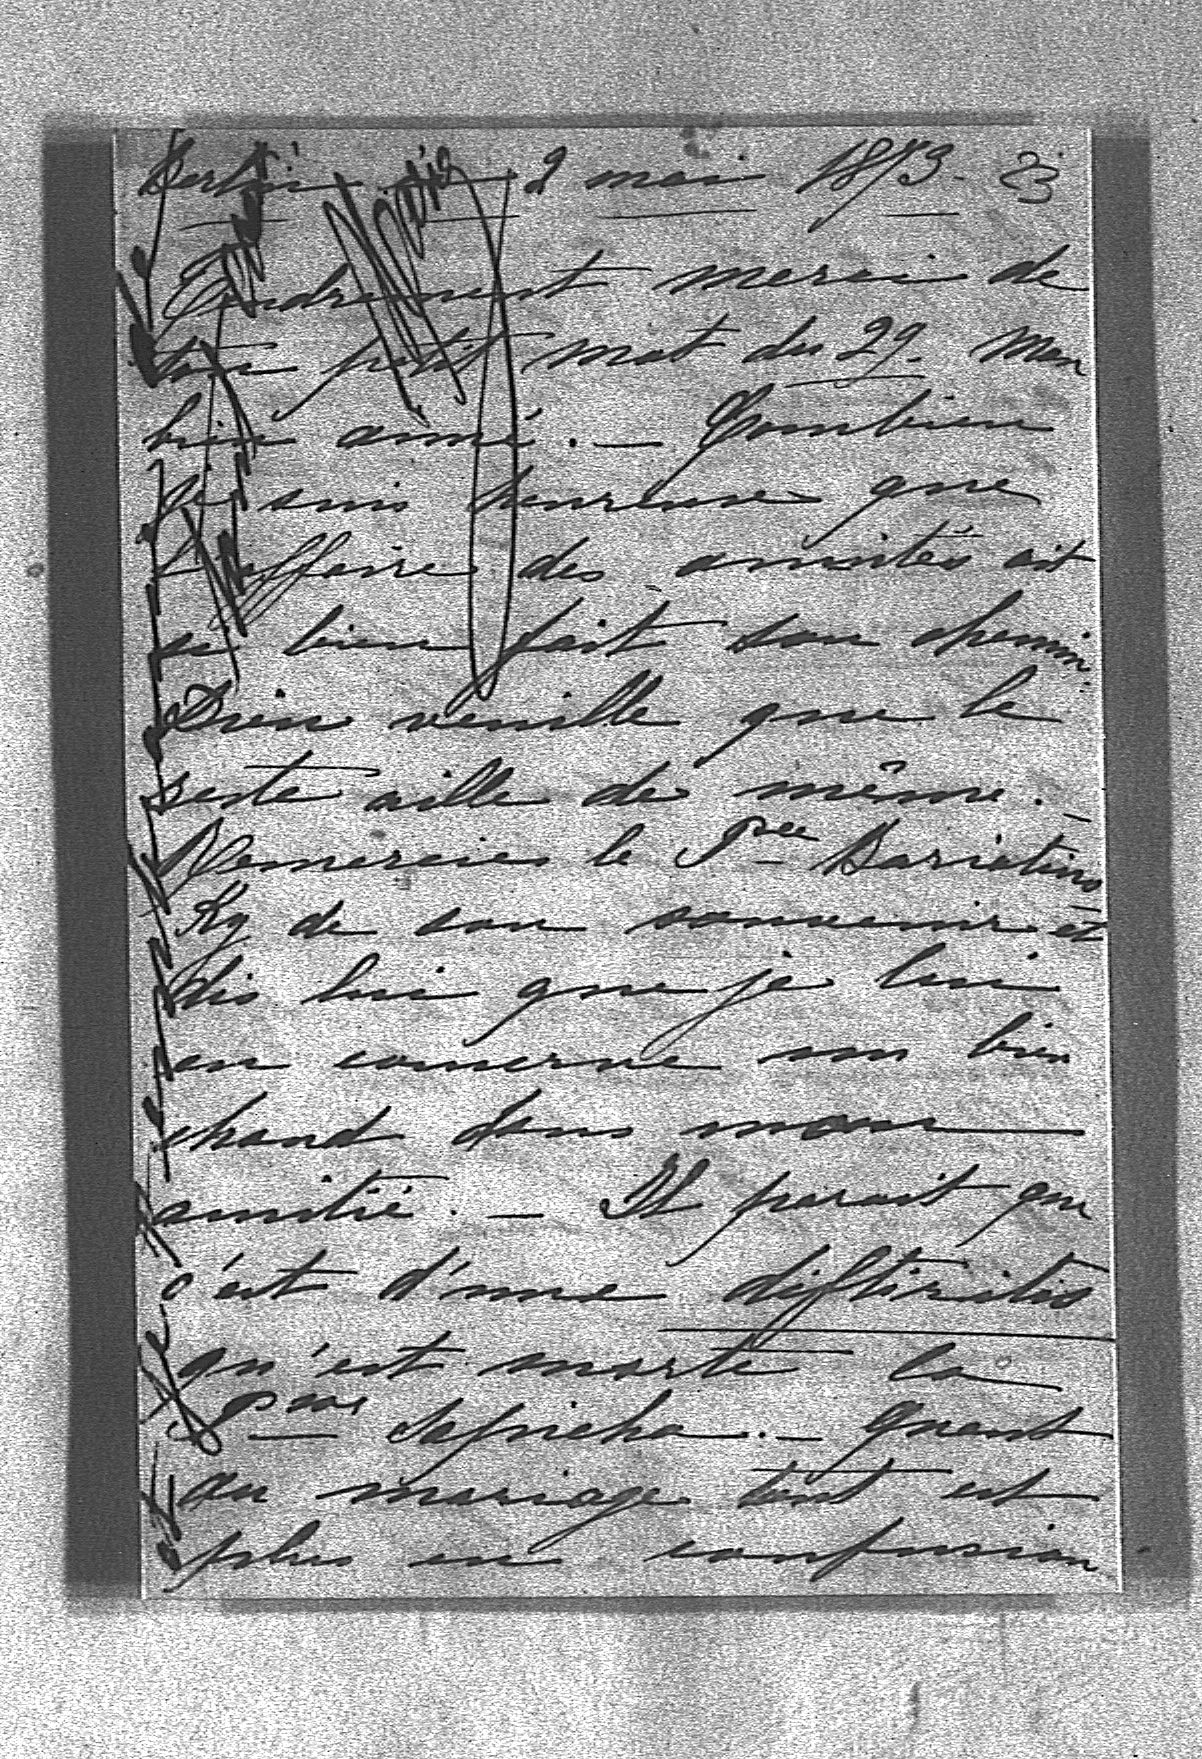 Berlin 2 mai 1873. 23
Tendrement merci de
ton petit mot du 29. Mon
bien aimé. — Combien
je suis heureuse que
l'affaire des amitiés ait
si bien fait son chemin.
Dieu veuille que le
reste aille de même. —
Remercies le Pce Bariatins
ky de son souvenir et
dis lui que je lui
en conserve un bien
chaud dans mon
amitié. — Il parait que
c'est d'une diftiritis
qu'est morte la
Pcesse Sapieha. — Quant
au mariage tout est
plus en confusion